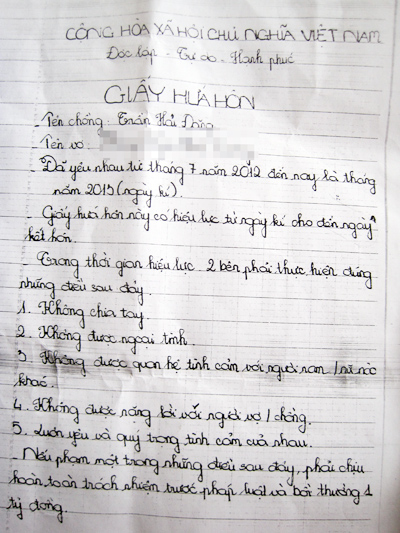 CỘNG HÒA XÃ HỘI CHỦ NGHĨA VIỆT NAM
Độc lập - Tự do - Hạnh phúc
GIẤY HỨA HÔN
- Tên chồng: Trần Hải Đăng
- Tên vợ:
- Đã yêu nhau từ tháng 7 năm 2012 đến nay là tháng
năm 2013 (ngày kí).
- Giấy hứa hôn này có hiệu lực từ ngày kí cho đến ngày
kết hôn.
Trong thời gian hiệu lực 2 bên phải thực hiện đúng
những điều sau đây
1. Không chia tay.
2. Không được ngoại tình.
3. Không được quan hệ tình cảm với người nam / nữ nào
khác.
4. Không được nặng lời với người vợ / chồng.
5. Luôn yêu và quý trọng tình cảm của nhau.
- Nếu phạm một trong những điều sau đây, phải chịu
hoàn toàn trách nhiệm trước pháp luật và bồi thường 1
tỷ đồng.